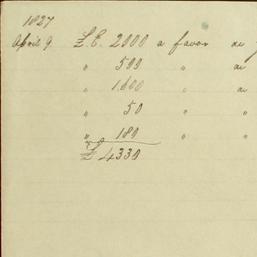 1827
April 9. £.E. 2000 a favor de
" 500 " de
" 1.600 " de
" 50 " "
" 180 " "
£ 4330